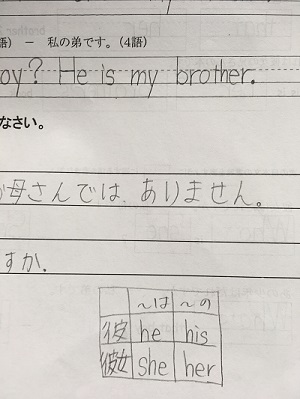 語) － 私の弟です。(4語)
oy? He is my brother.
なさい。
母さんでは、ありません。
すか.
～は ～の
彼 he his
彼女 she her